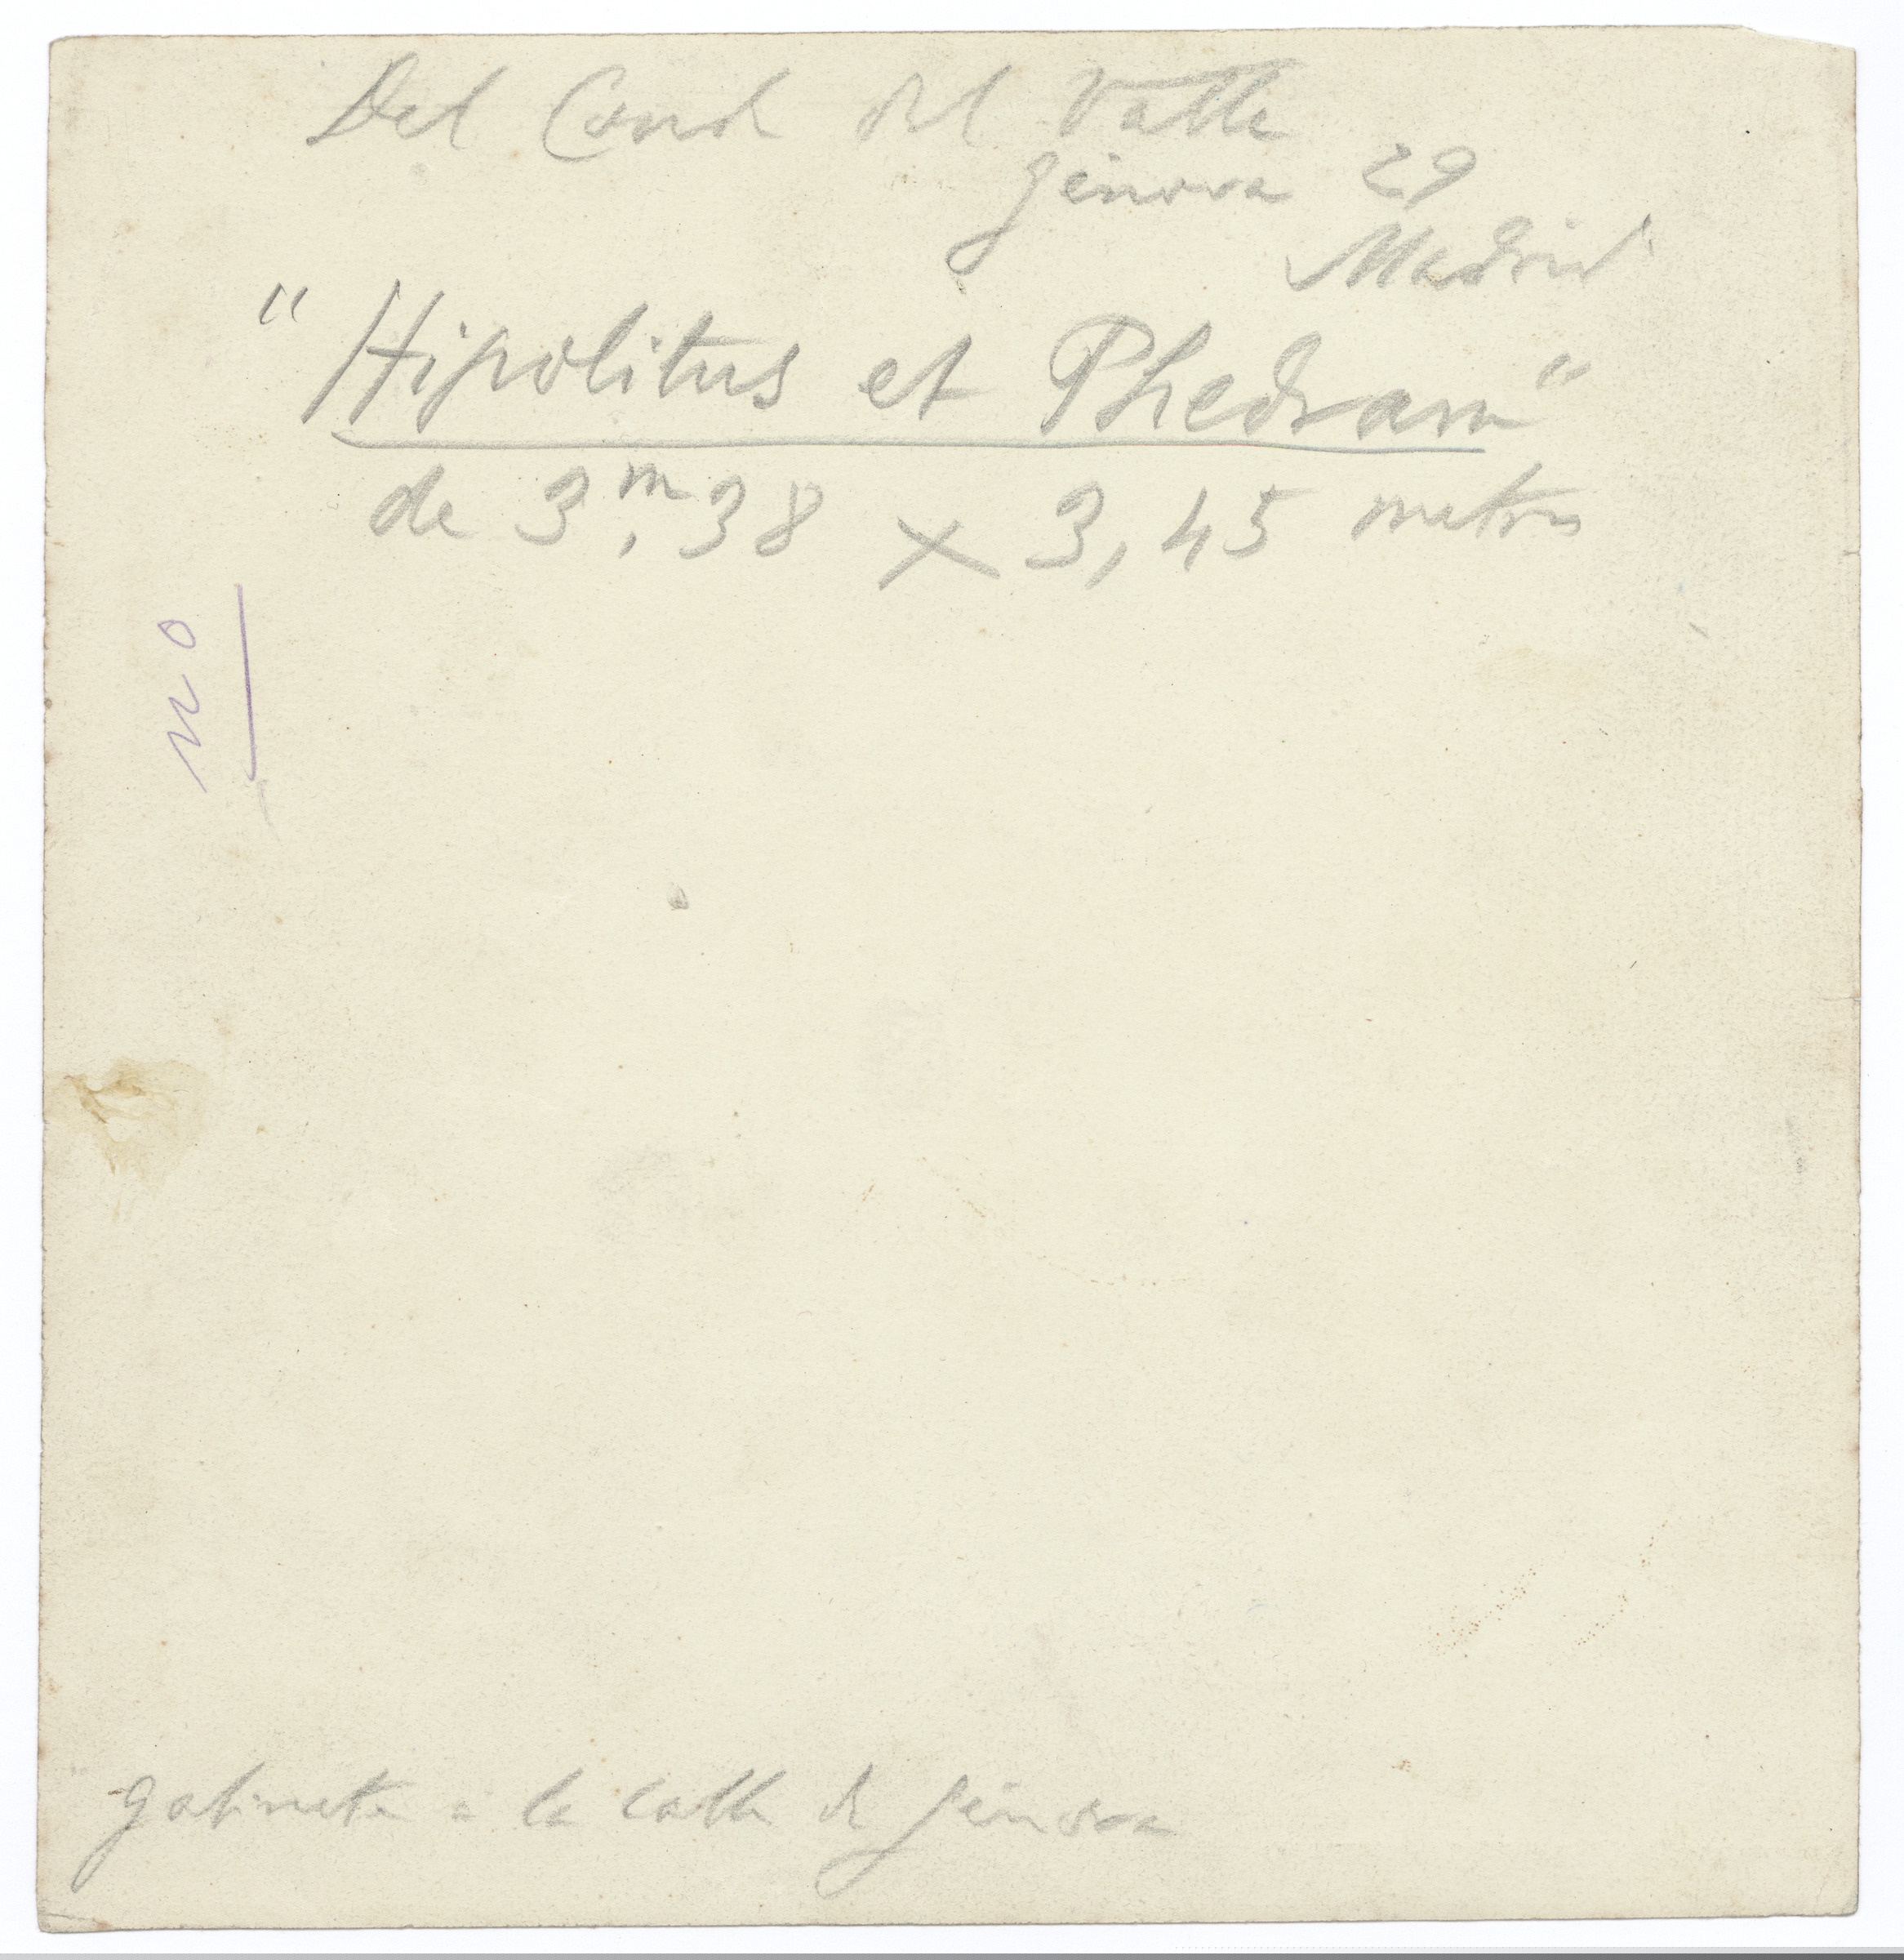 Del Conde del Valle
Génova 29
Madrid
"Hipolitus et Phedram"
de 3,ᵐ38 x 3,45 metros
no
gabinete a la calle de Génova